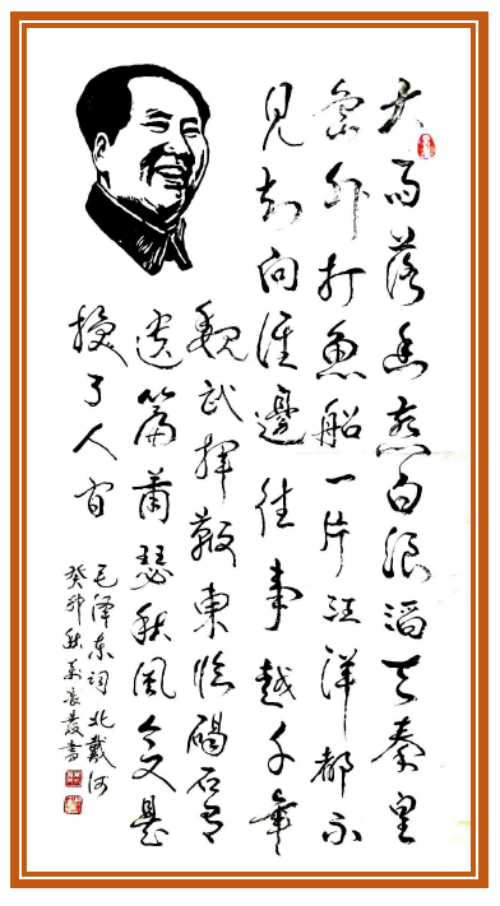 大雨落幽燕白浪滔天秦皇
岛外打魚船一片汪洋都不
見知向谁邊往事越千年
魏武揮鞭東临碣石有
遗篇萧瑟秋風今又是
换了人间
毛泽东词北戴河
癸卯秋書